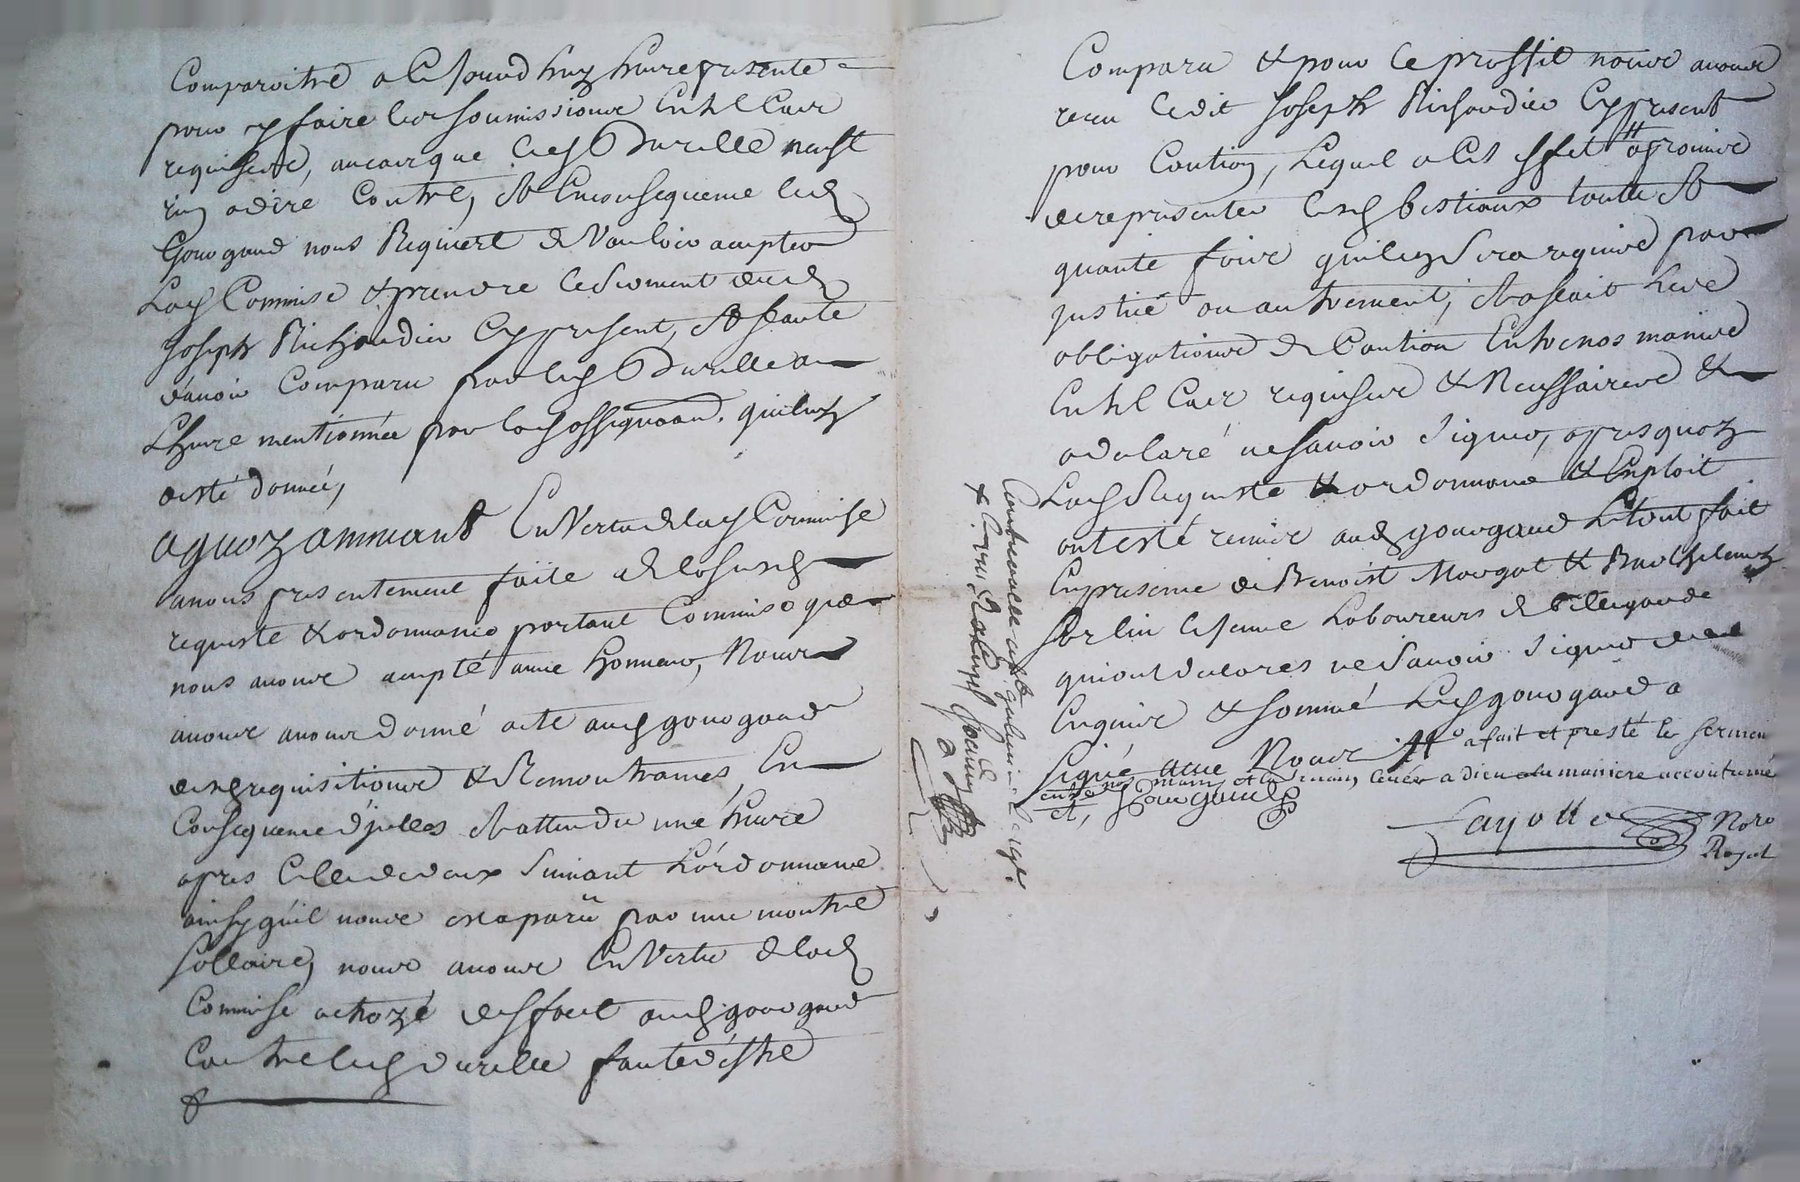 Comparoitre a ce jourdhuy heure presente
pour y faire les soumissions En tel Cas
requises, aucas que led Durelle neust
rien adire Contre, Et Enconsequence led
Gourgaud nous Requiert de Vouloir accepter
Lad Commise & prendre le serment dud
Joseph Richaudier Cy present, Et faute
d'avoir Comparu par led Durelle a
L'heure mentionnée par lad assignaon. quiluy
a esté donnée,
aquoz ammant En Vertu de lad Commise
anous presentement faite de la susd
requiste & ordonnance portant Commise que
nous avons accepté avec honneur, Nous
avons avons donné acte aud gourgaud
desd requisitions & Remontrances, En
Consequence d'jcelles Et attendu une heure
apres Celle de deux Suivant L'ordonnance
ainsy qu'il nous est aparu par une montre
sollaire, nous avons En Vertu de lad
Commise octrozé deffaut aud gourgaud
Contre led durelle faute d'estre
Comparu & pour le proffit nous avons
recu ledit Joseph Richaudier Cy present
pour Caution, Lequel a cet effet a promis
de representer lesd bestiaux toutte Et
quante fois quil en sera requis par
justice ou autrement, Et a fait Les
obligations de Caution Entre nos mains
En tel Cas requises & Necessaires &
a declaré ne savoir signer, apres quoz
Lad Requiste & ordonnance & Exploit
ont esté remis aud gourgaud Le tout fait
En presence de Benoist Margot & Barthelemy
Sorlin le jeune Laboureurs de
qui ont declarés ne Savoir signer de ce
Enquis & sommé Led gourgaud a
signé avec Nous
a fait et presté le sermen
entre nos mains, et la main levée a dieu a la maniere accoutumée
et, Gourgaud
Fayolle Nore
Royal